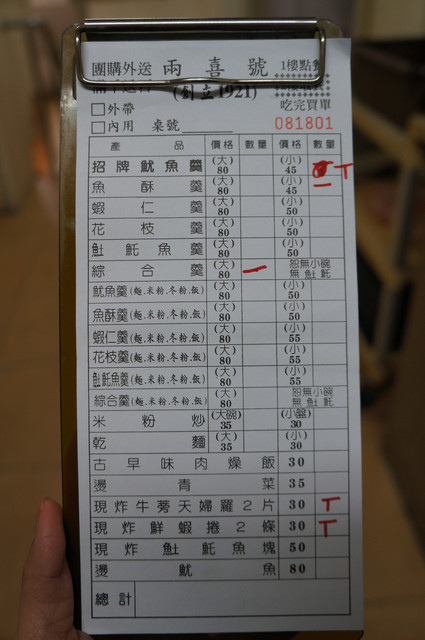 團購外送 兩喜號 1樓點餐
(創立1921)
□外帶 吃完買單
□內用 桌號 081801
產品 價格 數量 價格 數量
招牌魷魚羹 (大)80 (小)45 T
魚酥羹 (大)80 (小)45 一
蝦仁羹 (大)80 (小)50
花枝羹 (大)80 (小)50
𩵚魠魚羹 (大)80 (小)50
綜合羹 (大)80 一 恕無小碗 無𩵚魠
魷魚羹(麵.米粉.冬粉.飯) (大)80 (小)50
魚酥羹(麵.米粉.冬粉.飯) (大)80 (小)50
蝦仁羹(麵.米粉.冬粉.飯) (大)80 (小)55
花枝羹(麵.米粉.冬粉.飯) (大)80 (小)55
𩵚魠魚羹(麵.米粉.冬粉.飯) (大)80 (小)55
綜合羹(麵.米粉.冬粉.飯) (大)80 恕無小碗 無𩵚魠
米粉炒 (大碗)35 (小盤)30
乾麵 (大)35 (小)30
古早味肉燥飯 30
燙青菜 35
現炸牛蒡天婦羅2片 30 T
現炸鮮蝦捲2條 30 T
現炸𩵚魠魚塊 50
燙魷魚 80
總計